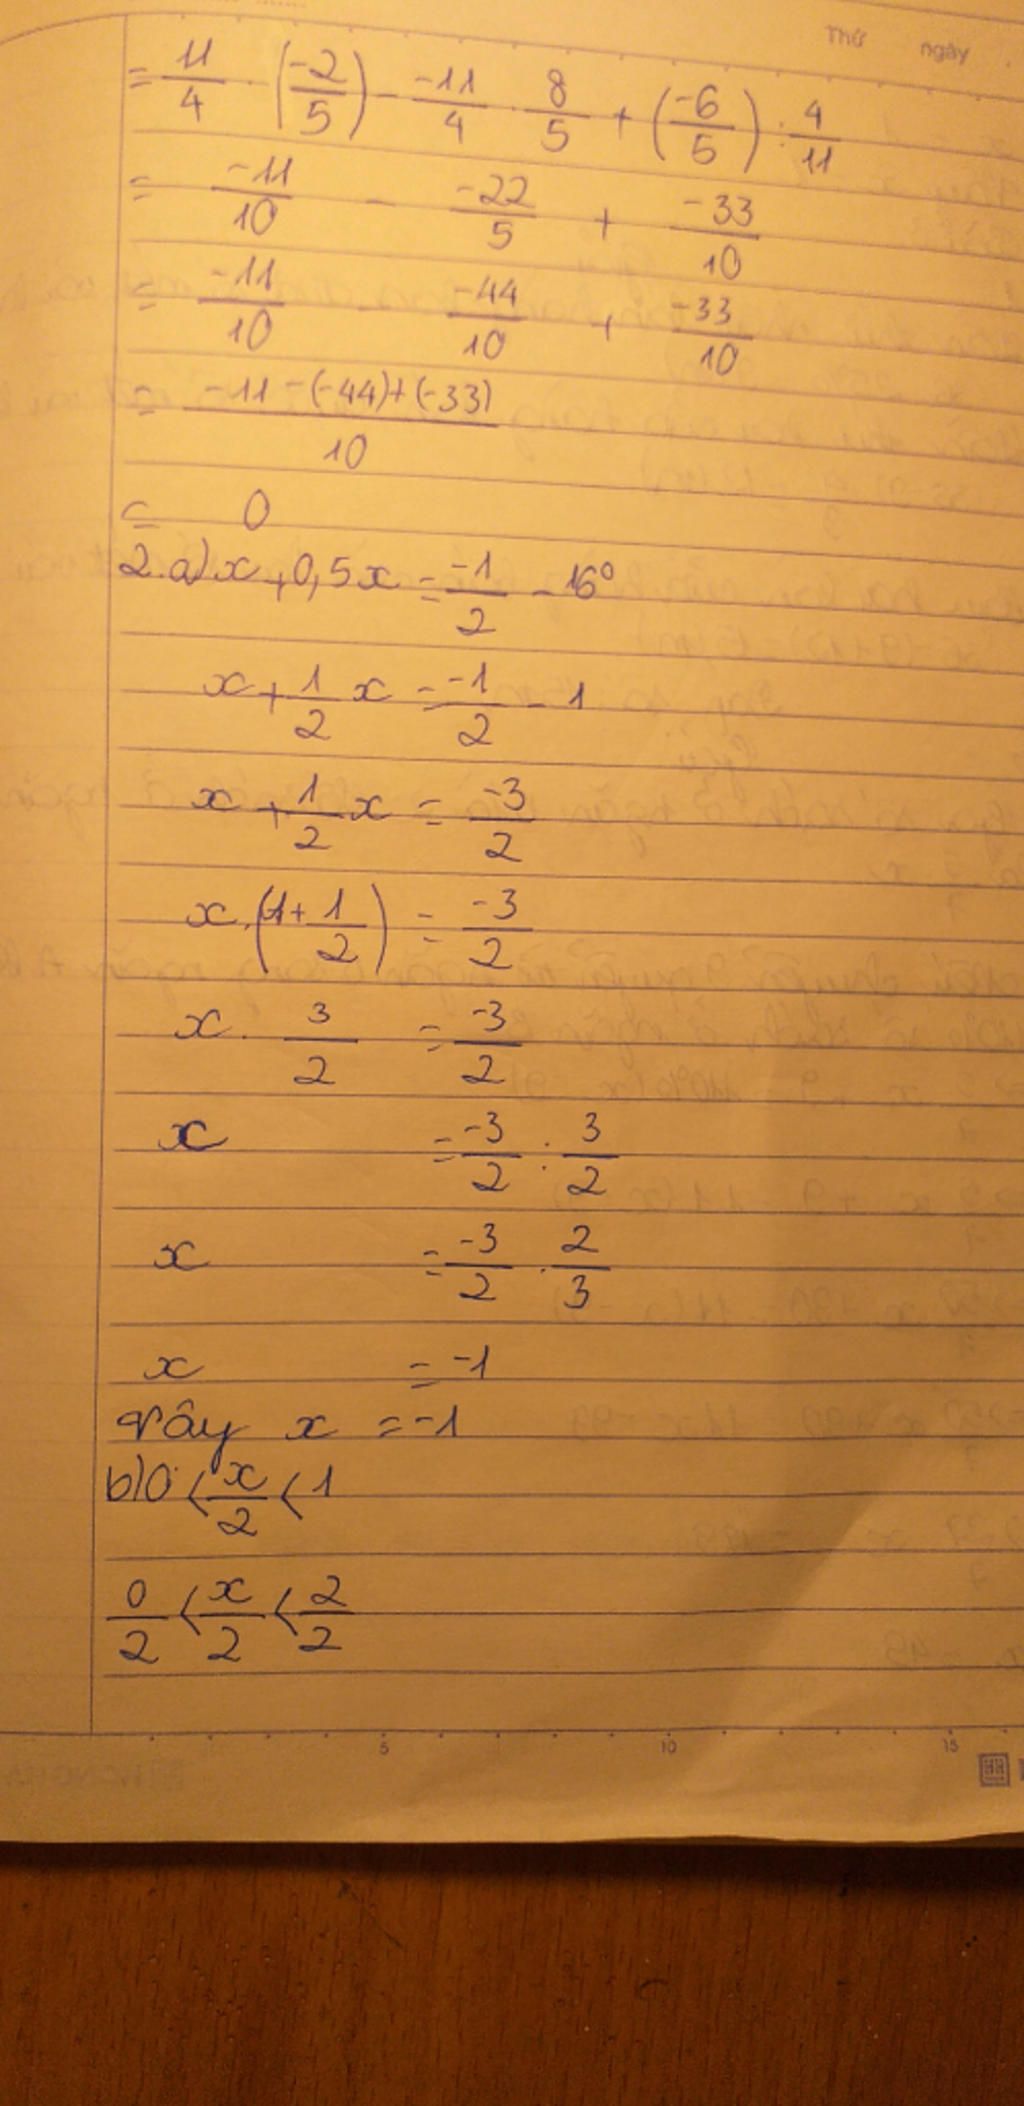 Thứ ngày
= 11/4 · (-2/5) - -11/4 · 8/5 + (-6/5) : 4/11
= -11/10 - -22/5 + -33/10
= -11/10 - -44/10 + -33/10
= -11-(-44)+(-33)/10
= 0
2.a) x+0,5x = -1/2 - 16⁰
x + 1/2 x = -1/2 - 1
x + 1/2 x = -3/2
x.(1+1/2) = -3/2
x. 3/2 = -3/2
x = -3/2 : 3/2
x = -3/2 . 2/3
x = -1
Vây x = -1
b) 0 < x/2 < 1
0/2 < x/2 < 2/2
5 10 15